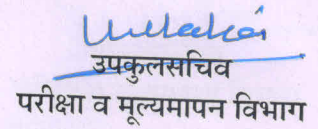 उपकुलसचिव
परीक्षा व मूल्यमापन विभाग